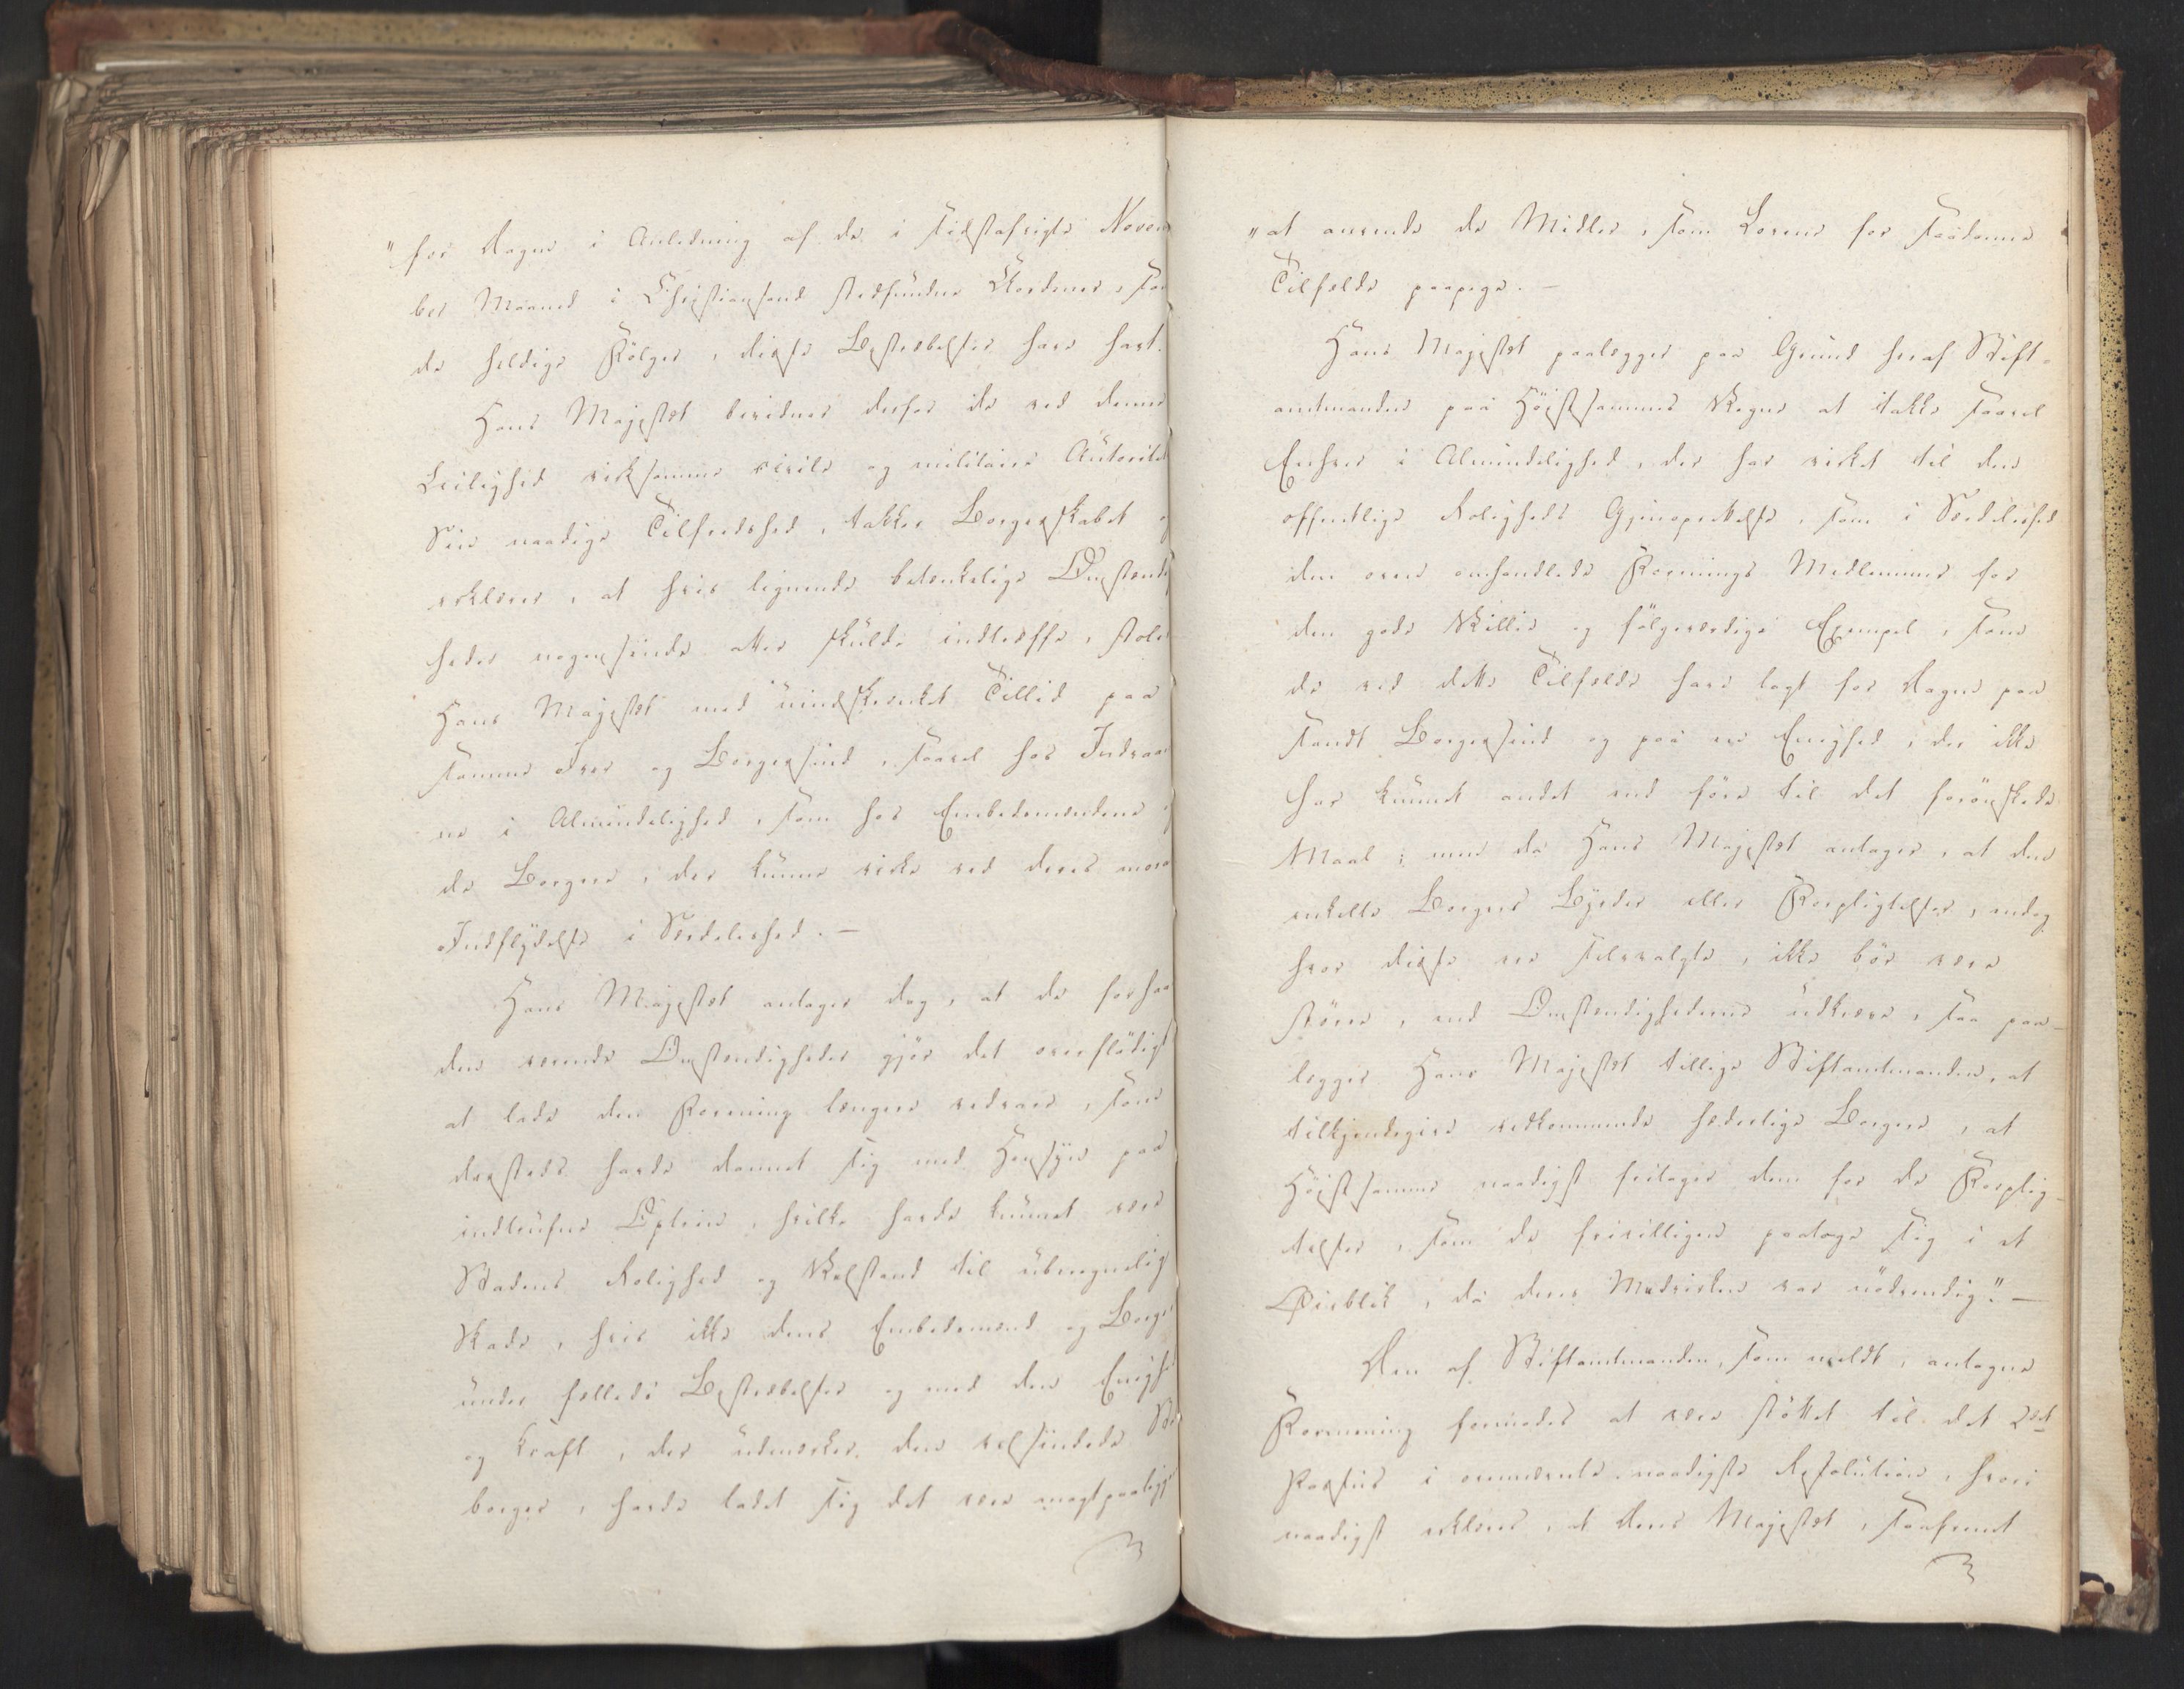 "for Dagen i Anledning af de i sidstafvigte Novem
ber Maaned i Christiansand stedfundne Uordener, sam
de heldige Følger, disse Bestræbelser have havt.
Hans Majestæt bevidner derfor de ved denne
Leilighed virksomme civile og militaire Autoritet
Sin naadige Tilfredshed, takker Borgerskabet o
erklærer, at hvis lignende betænkelige Omstændig
heder nogensinde atter skulde indtræffe, stoler
Hans Majestæt med uindskrænket Tillid paa
samme Iver og Borgersind, saavel hos Indvaan
ne i Almindelighed, som hos Embedsmændene o
de Borgere, der kunne virke ved deres mora
Indflydelse i Særdeleshed. —
Hans Majestæt antager dog, at de forhaan
den værende Omstændigheder gjør det overflødigt
at lade den Forening længere vedvare, som
dersteds havde dannet sig med Hensyn paa
indtrufne Optrin, hvilke havde kunnet være
Stadens Rolighed og Velstand til uberegnelig
Skade, hvis ikke dens Embedsmænd og Borger
under fælleds Bestræbelser og med den Enighe
og Kraft, der udmærker den velsindede Sta
borger, havde ladet sig det være magtpaaligge
"at anvende de Midler, som Lovene for saadanne
Tilfælde paapege. —
Hans Majestæt paalægger paa Grund heraf Stift-
amtmanden paa Høistsammes Vegne at takke saavel
Enhver i Almindelighed, der har virket til den
offentlige Roligheds Gjenoprettelse, som i Særdeleshed
den oven omhandlede Forenings Medlemmer for
den gode Villie og følgeværdige Exempel, som
de ved dette Tilfælde have lagt for Dagen paa
sandt Borgersind og paa en Enighed, der ikke
har kunnet andet end føre til det forønskede
Maal; men da Hans Majestæt antager, at den
enkelte Borgers Byrder eller Forpligtelser, endog
hvor disse ere selvvalgte, ikke bør være
større, end Omstændighederne udkræve, saa paa-
lægger Hans Majestæt tillige Stiftamtmanden, at
tilkjendegive vedkommende hæderlige Borgere, at
Høistsamme naadigst fritager dem for de Forplig-
telser, som de frivilligen paatoge sig i et
Øieblik, da deres Medvirken var nødvendig". —
Den af Stiftamtmanden, som meldt, antagne
Formening formodes at være støttet til det 2det
Passus i ovennævnte naadigste Resolution, hvori
naadigst erklæres, at Deres Majestæt, saafremt